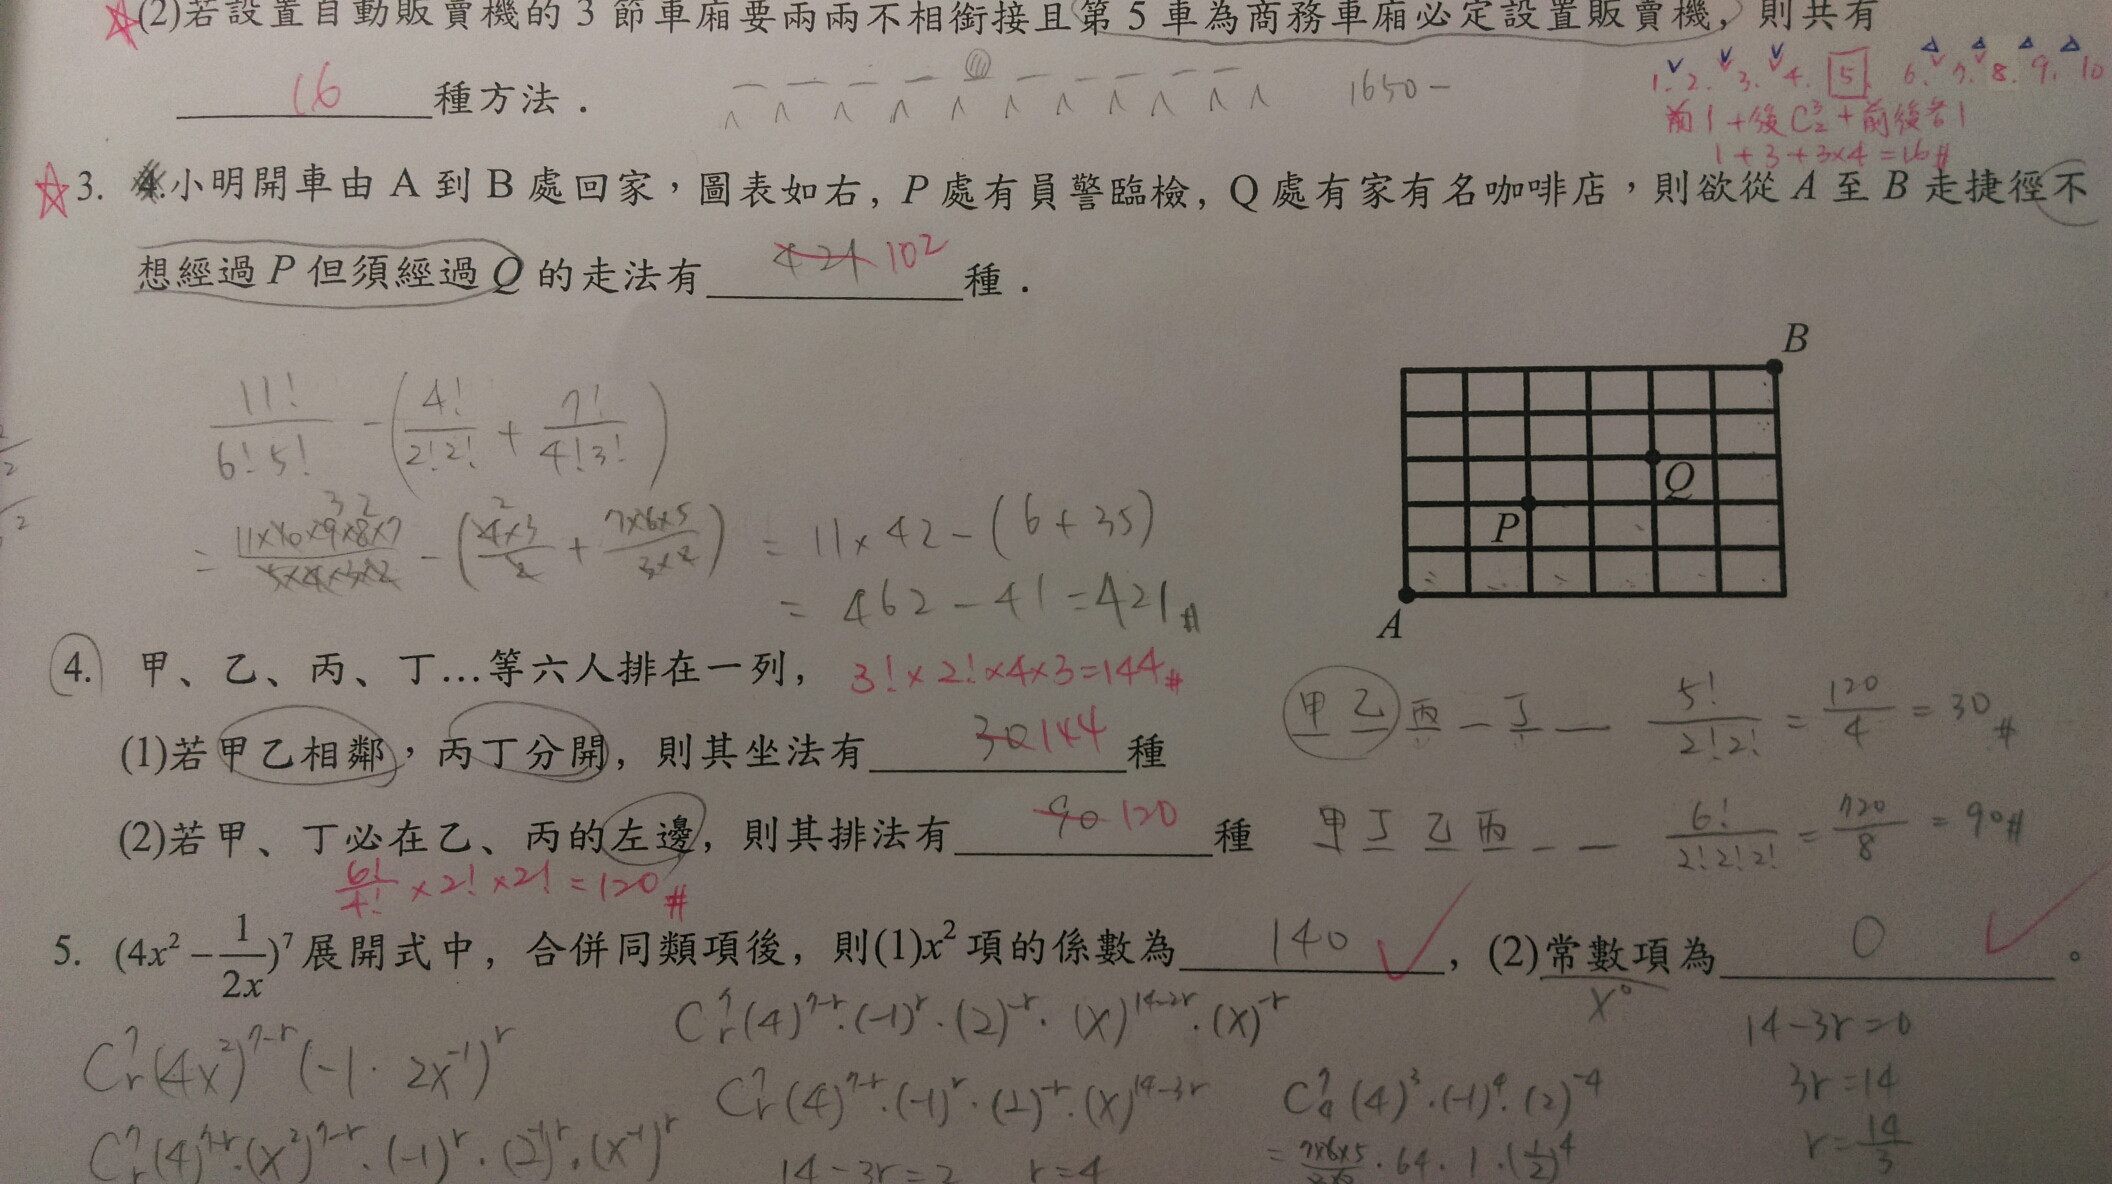 (2)若設置自動販賣機的 3 節車廂要兩兩不相銜接且第 5 車為商務車廂必定設置販賣機，則共有
16 種方法．
1650 -
1. 2. 3. 4. 5 6. 7. 8. 9. 10
前1+後C³₂+前後各1
1+3+3×4=16#
3. 小明開車由 A 到 B 處回家，圖表如右, P 處有員警臨檢, Q 處有家有名咖啡店，則欲從 A 至 B 走捷徑不
想經過 P 但須經過 Q 的走法有 421 102 種．
11!/6!5! - (4!/2!2! + 7!/4!3!)
= 11×10×9×8×7/5×4×3×2 - (4×3/2 + 7×6×5/3×2) = 11×42-(6+35)
= 462-41=421#
B
Q
P
A
4. 甲、乙、丙、丁…等六人排在一列，
3!×2!×4×3=144#
(1)若甲乙相鄰，丙丁分開，則其坐法有 30 144 種
甲 乙 丙 一 丁 一 5!/2!2! = 120/4 = 30#
(2)若甲、丁必在乙、丙的左邊，則其排法有 90 120 種
甲 丁 乙 丙 一 一 6!/2!2!2! = 720/8 = 90#
6!/4! ×2!×2! =120#
5. (4x² - 1/2x)⁷ 展開式中，合併同類項後，則(1)x² 項的係數為 140，(2)常數項為 0。
x⁰
C⁷ᵣ(4x²)⁷⁻ʳ(-1·2x⁻¹)ʳ
C⁷ᵣ(4)⁷⁻ʳ·(-1)ʳ·(2)⁻ʳ·(x)¹⁴⁻²ʳ·(x)⁻ʳ
14-3r=0
C⁷ᵣ(4)⁷⁻ʳ·(-1)ʳ·(2)⁻ʳ·(x)¹⁴⁻³ʳ
C⁷₄(4)³·(-1)⁴·(2)⁻⁴
3r=14
C⁷ᵣ(4)⁷⁻ʳ·(x²)⁷⁻ʳ·(-1)ʳ·(2⁻¹)ʳ·(x⁻¹)ʳ
14-3r=2 r=4
=7×6×5/3×2·64·1·(1/2)⁴
r=14/3